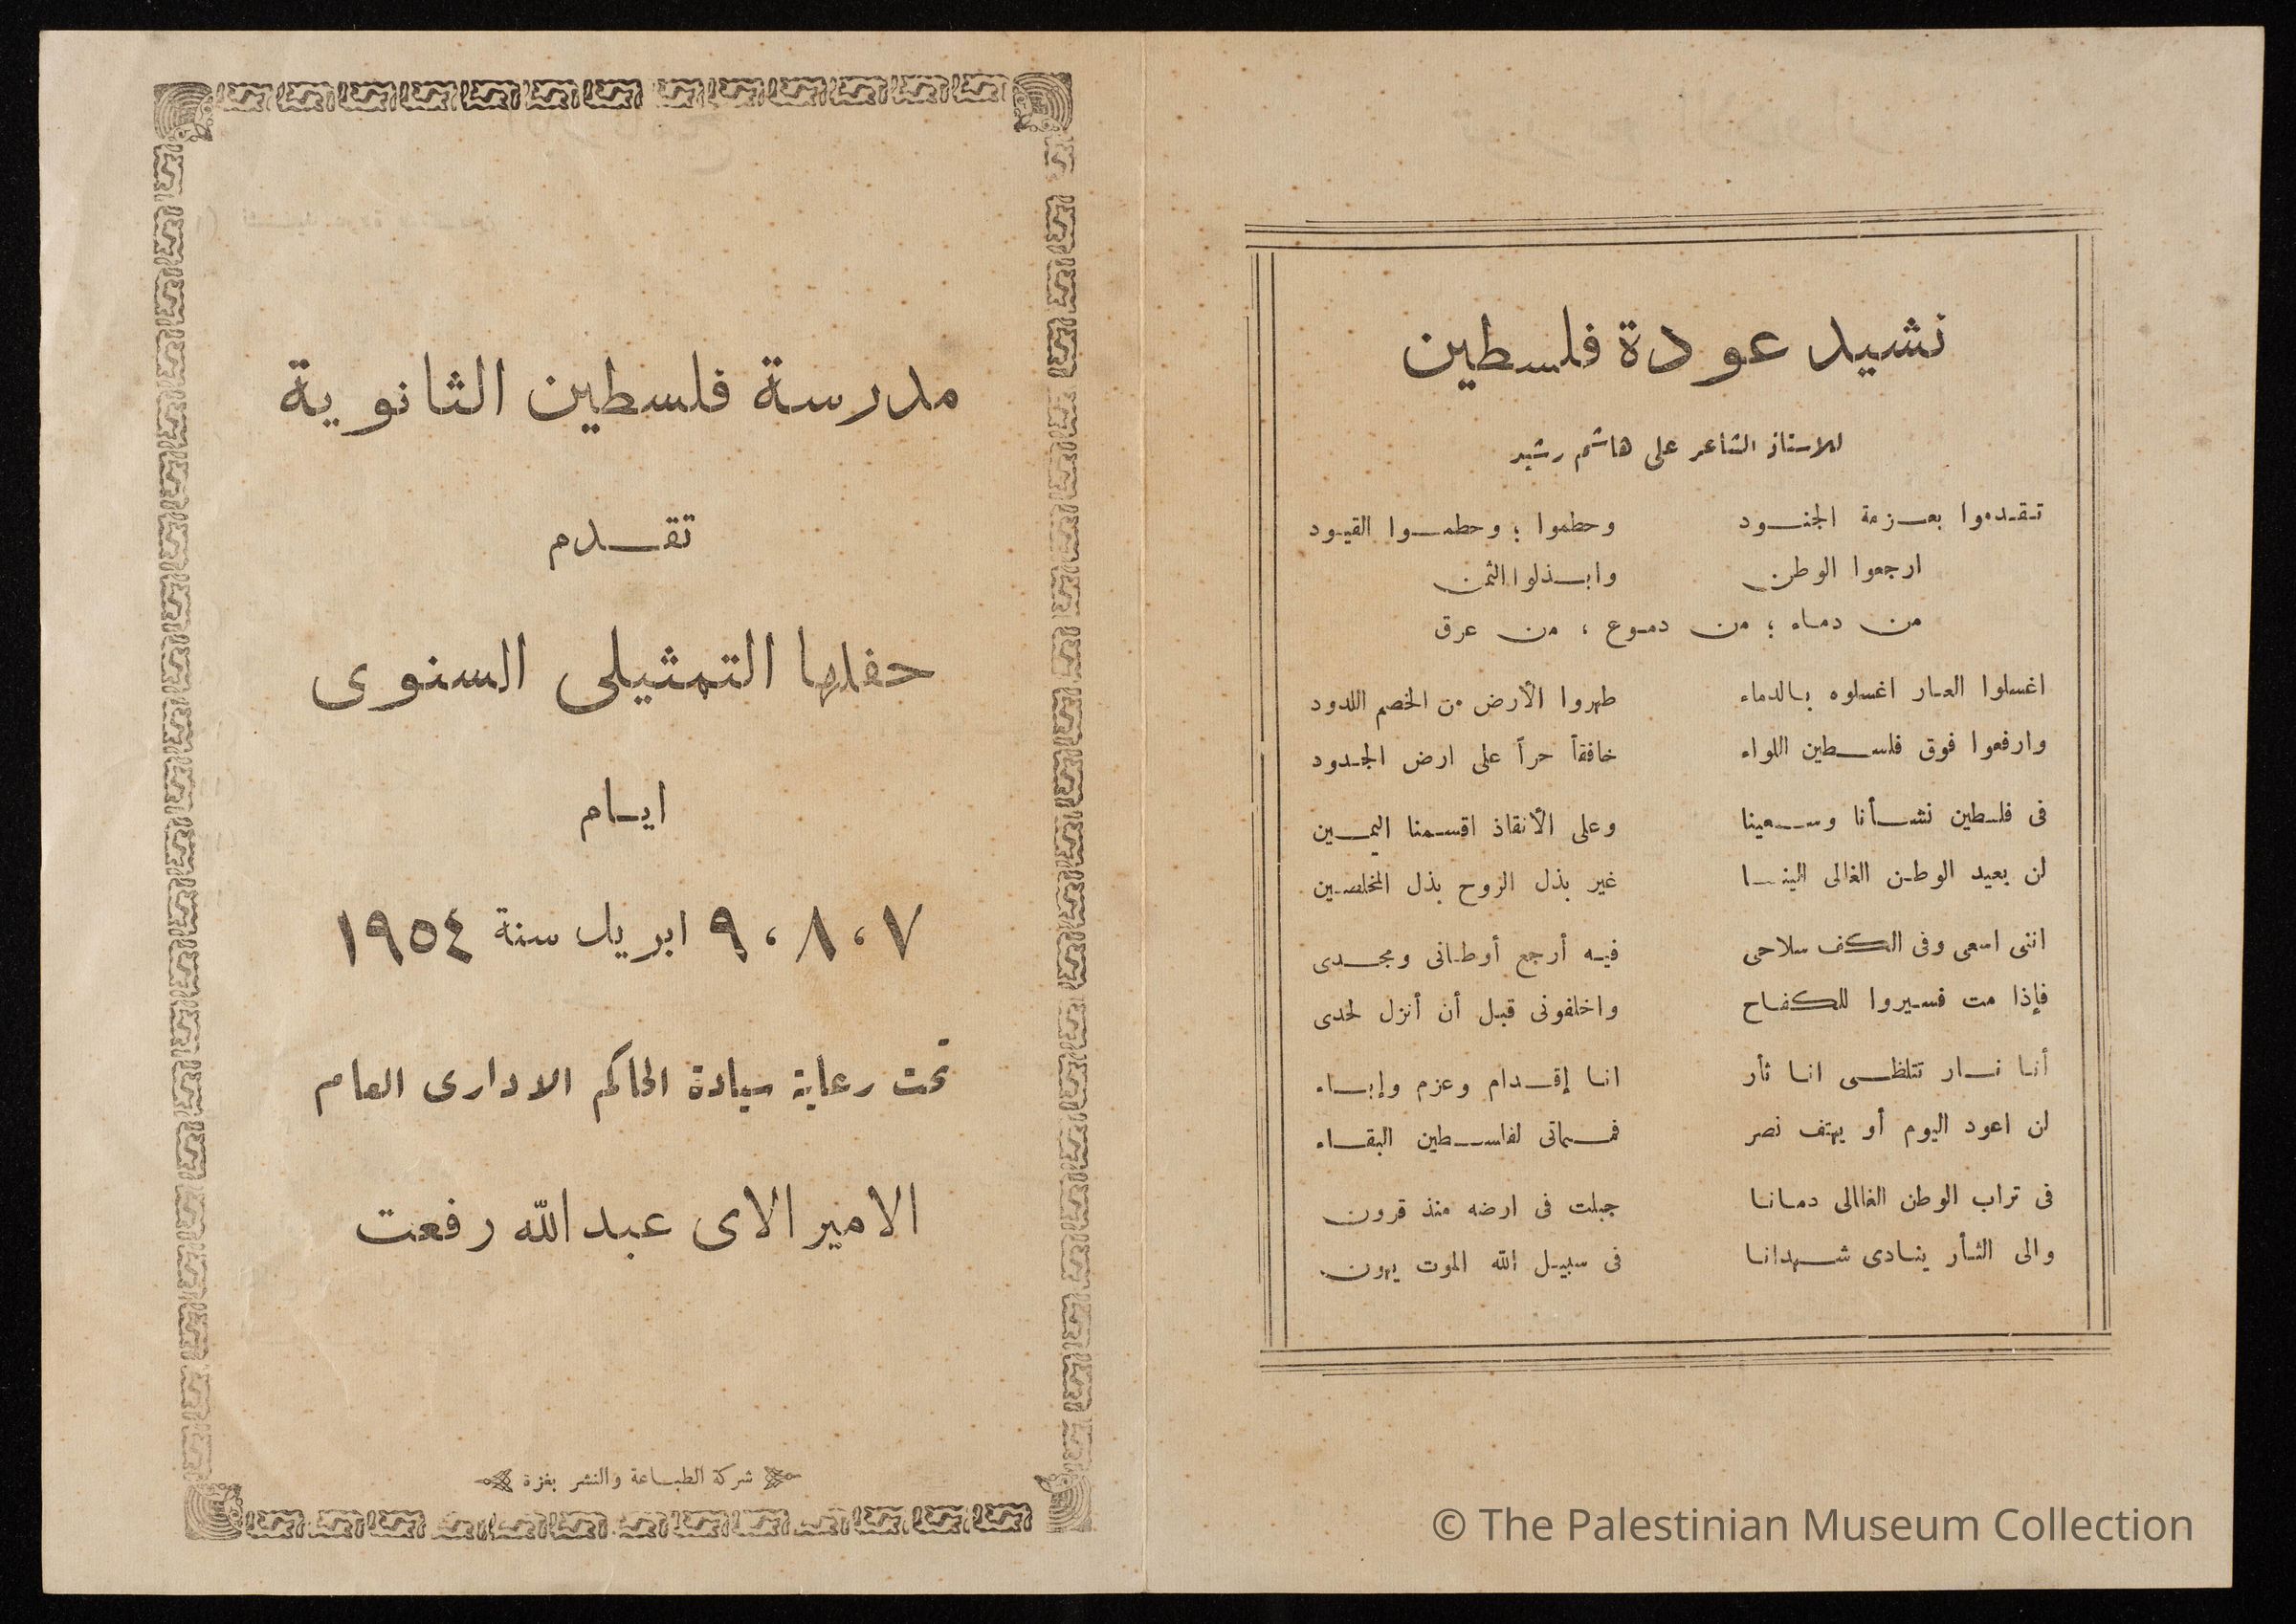 نشيد عودة فلسطين
للاستاذ الشاعر على هاشم رشيد
تقدموا بعزمة الجنود وحطموا ؛ وحطموا القيود
ارجعوا الوطن وابذلوا الثمن
من دماء ؛ من دموع ، من عرق
اغسلوا العار اغسلوه بالدماء طهروا الأرض من الخصم اللدود
وارفعوا فوق فلسطين اللواء خافقاً حراً على ارض الجدود
فى فلسطين نشأنا وسعينا وعلى الأنقاذ اقسمنا اليمين
لن يعيد الوطن الغالى الينا غير بذل الروح بذل المخلصين
اننى اسعى وفى الكف سلاحى فيه أرجع أوطانى ومجدى
فإذا مت فسيروا للكفاح واخلفونى قبل أن أنزل لحدى
أنا نار تتلظى انا ثأر انا إقدام وعزم وإباء
لن اعود اليوم أو يهتف نصر فمماتى لفلسطين البقاء
فى تراب الوطن الغاالى دمانا جبلت فى ارضه منذ قرون
والى الثأر ينادى شهدانا فى سبيل الله الموت يهون
مدرسة فلسطين الثانوية
تقدم
حفلها التمثيلى السنوى
ايام
٧ ، ٨ ، ٩ ابريل سنة ١٩٥٤
تحت رعاية سيادة الحاكم الادارى العام
الاميرالاى عبدالله رفعت
شركة الطباعة والنشر بغزة
© The Palestinian Museum Collection